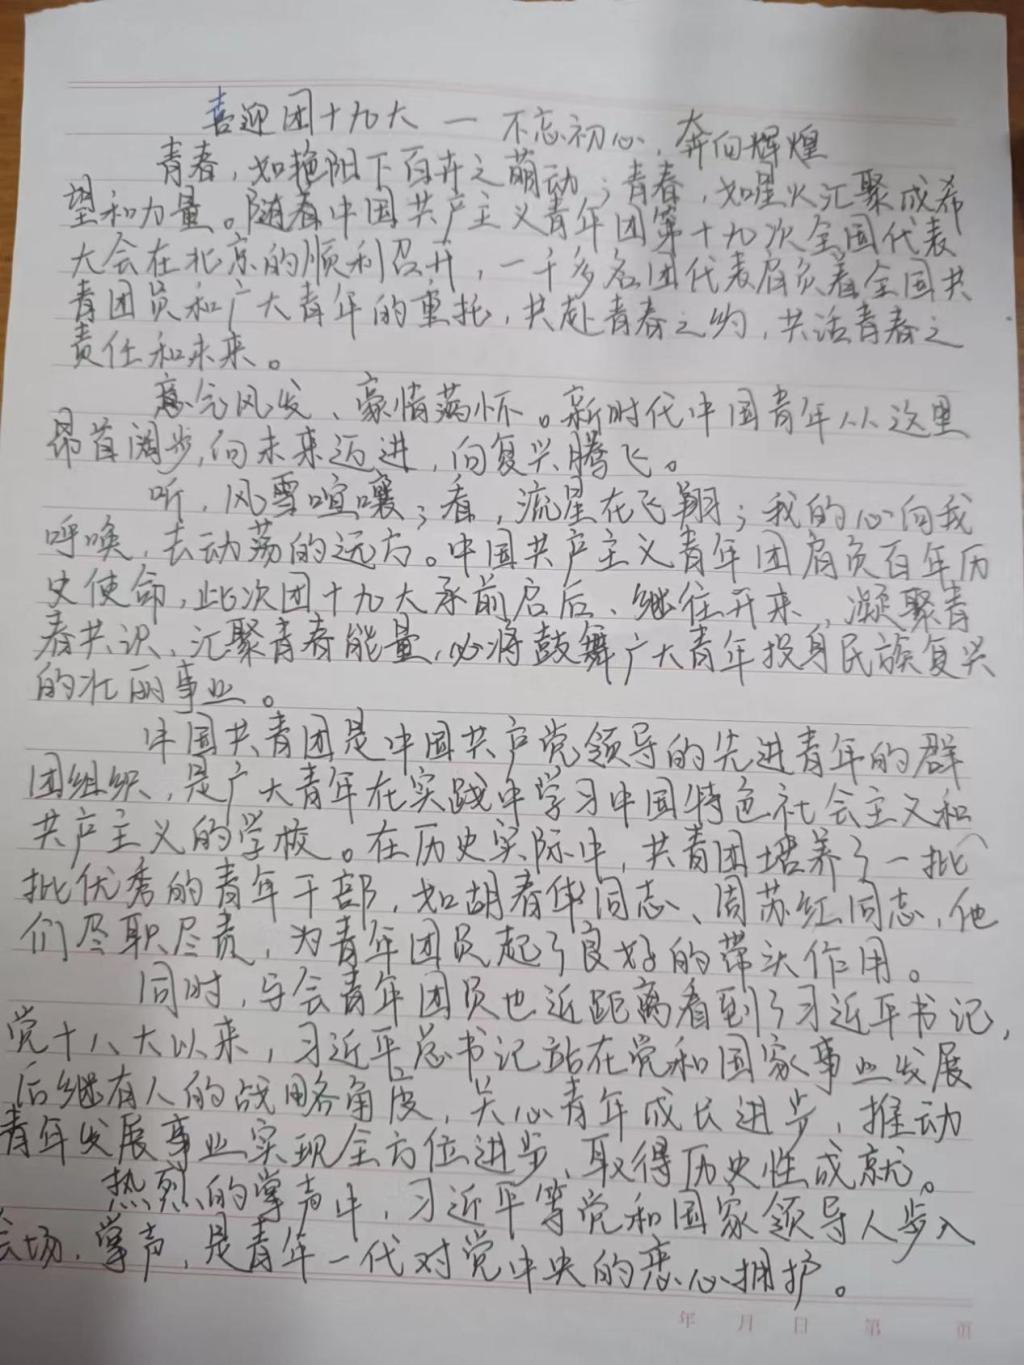 喜迎团十九大 — 不忘初心，奔向辉煌
青春，如艳阳下百卉之萌动；青春，如星火汇聚成希
望和力量。随着中国共产主义青年团第十九次全国代表
大会在北京的顺利召开，一千多名团代表肩负着全国共
青团员和广大青年的重托，共赴青春之约，共话青春之
责任和未来。
意气风发、豪情满怀。新时代中国青年从这里
昂首阔步，向未来迈进，向复兴腾飞。
听，风雪喧嚷；看，流星在飞翔；我的心向我
呼唤，去动荡的远方。中国共产主义青年团肩负百年历
史使命，此次团十九大承前启后、继往开来，凝聚青
春共识、汇聚青春能量，必将鼓舞广大青年投身民族复兴
的壮丽事业。
中国共青团是中国共产党领导的先进青年的群
团组织，是广大青年在实践中学习中国特色社会主义和
共产主义的学校。在历史实际中，共青团培养了一批
批优秀的青年干部，如胡春华同志、周苏红同志，他
们尽职尽责，为青年团员起了良好的带头作用。
同时，与会青年团员也近距离看到了习近平书记，
党十八大以来，习近平总书记站在党和国家事业发展
后继有人的战略角度，关心青年成长进步，推动
青年发展事业实现全方位进步、取得历史性成就。
热烈的掌声中，习近平等党和国家领导人步入
会场，掌声，是青年一代对党中央的忠心拥护。
年 月 日 第 页